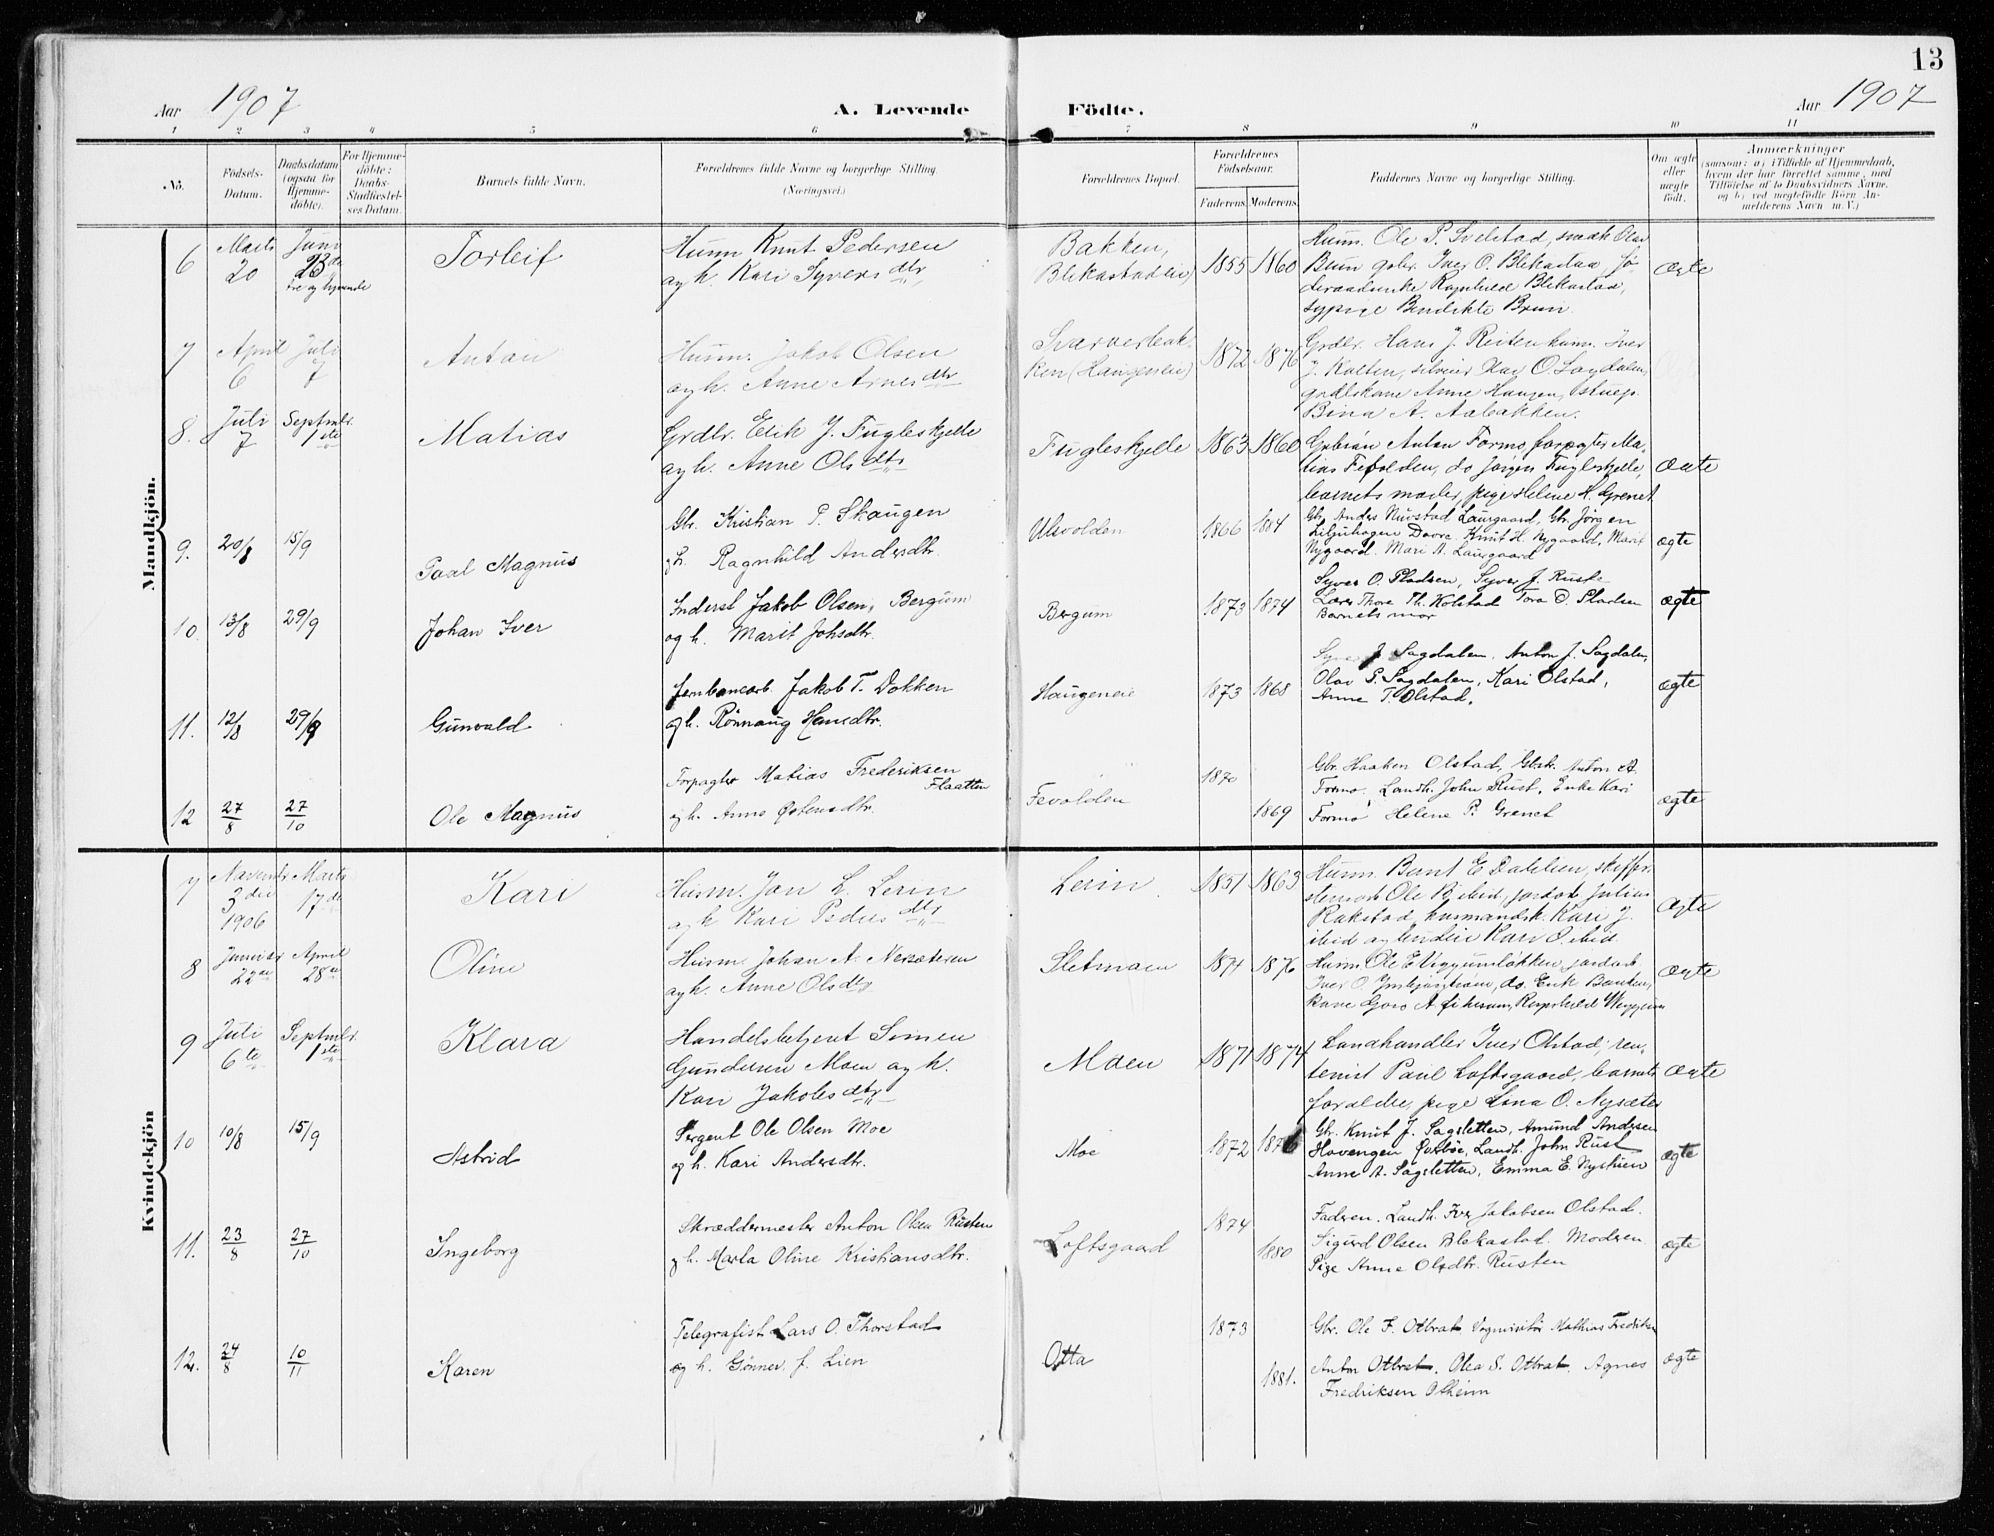 13
Aar 1907 A. Levende Födte. Aar 1907
1 2 3 4 5 6 7 8 9 10 11
No. Födsels-Datum. Daabsdatum (ogsaa for Hjemmedöbte). For Hjemmedöbte: Daabs-Stadfæstelses Datum. Barnets fulde Navn. Forældrenes fulde Navne og borgerlige Stilling. (Næringsvei.) Forældrenes Bopæl. Forældrenes Födselsaar. Faderens. Moderens. Faddernes Navne og borgerlige Stilling. Om ægte eller uægte födt. Anmærkninger (saasom: a) i Tilfælde af Hjemmedaab, hvem der har forrettet samme, med Tilföielse af to Daabsvidners Navne, og b) ved uægtefödte Börn Anmelderens Navn m. V.)
Mandkjön.
6 Marts 20 Juni 23de tre og tyvende Torleif Husm Knut Pedersen
og h. Kari Syversdtr Bakken, Blekastadeie) 1855 1860 Husm. Ole P. Svelstad, smak Olav
Brun gbr. Iver O. Blekastad,
Ragnhild Blekastad,
sypige Bendikte Brun ægte
7 April 6 Juli 7 Anton Husm. Jakob Olsen
og h. Anne Arnesdtr Svarverbakken (Haugeneie) 1872 1876 Grdbr. Hans J. Reiten husm. Iver
J. Kolten, O. Sagdalen,
grdbrkone Anne Haugen, stuep.
Bina A. Aabakken.
8. Juli 7 Septmbr. 1ste Matias Grdbr. Erik J. Fugleskjelle
og h. Anne Olsdtr Fugleskjelle 1863 1860 Gbrsön Anton Formo, forpagter Matias Fevolden, do Jörgen Fugleskjelle,
barnets moder, pige Helene H. Grenet ægte
9. 20/8 15/9 Paal Magnus Gbr. Kristian P. Skaugen
g h. Ragnhild Andersdtr. Ulvolden 1866 Gbr. Anders Nustad Laurgaard, Gbr. Jörgen
Liljuhagen Dovre Knut H. Nygaard, Marit
Nygaard. Mari A. Laurgaard ægte
10. 13/8 29/9 Johan Iver Inderst Jakob Olsen, Bergum
og h. Marit Johsdtr. Bergum 1873 1874 Syver O. Pladsen, Syver J. Ruste
Lærer Thore Th. Kolstad Tora O. Pladsen
Barnets mor ægte
11. 12/8 29/9 Gunvald Jernbanearb. Jakob T. Dokken
og h. Rönnaug Hansdtr. Haugeneie 1873 1868 Syver J. Sagdalen. Anton J. Sagdalen,
Olav P. Sagdalen, Kari Olstad,
Anne T. Olstad. ægte
12 27/8 27/10 Ole Magnus Forpagter Matias Frederiksen Flaatten
og h. Anne Östensdtr. Fevolden 1870 1869 Gbr. Haaken Olstad, Gbsk. Anton A.
Formo. Landh. John Rust, Enke Kari
Formo Helene P. Grenet ægte
Kvindekjön
7 Novembr 3die 1906 Marts 17de Kari Husm. Jon L. Lerin
og h Kari Pedersdtr Lerin 1851 1863 Husm. Bernt E Dalelien,
Ole jordarb Julius
Rakstad, husmandsk. Kari J.
ibid og Kari O. ibid. ægte
8 Januar 22de April 28de Oline Husm. Johan A. Nersæteren
og h. Anne Olsdtr Sletmoen 1874 1876 Husm. Ole E Viggumsløkken, jordarb
Iver O. do. Erik Bakken,
kone Goro A Ragnhild Viggum ægte
9 Juli 6te Septmbr. 1ste Klara Handelsbetjent Simen
Gundersen Moen og h.
Kari Jakobsdtr Moen 1871 1874 Landhandler Iver Olstad, rentenist Paul Loftsgaard, barnets
forældre, pige Lina O. Nysæter ægte
10 10/8 15/9 Astrid Sergent Ole Olsen Moe
og h. Kari Andersdtr. Moe 1872 1876 Gbr. Knut J. Sagsletten, Amund Andersen
Hovengen Landh. John Rust
Anne A. Sagsletten, Emma E. Nystuen ægte
11. 23/8 27/10 Ingeborg Skræddermester Anton Olsen Rusten
g h. Marta Oline Kristiansdtr. Loftsgaard 1874 1880 Faderen. Landh. Iver Jakobsen Olstad.
Sigurd Olsen Blekastad. Modren
Pige Anne Olsdtr. Rusten ægte
12. 24/8 10/11 Karen Telegrafist Lars O. Thorstad
og h. Gönner f. Lien Otta 1873 1881. Gbr. Ole F. Otbrat Vognvisitör Mathias Fredriksen
Anton Otbrat. Olea S. Otbrat. Agnes
Fredriksen Olheim ægte